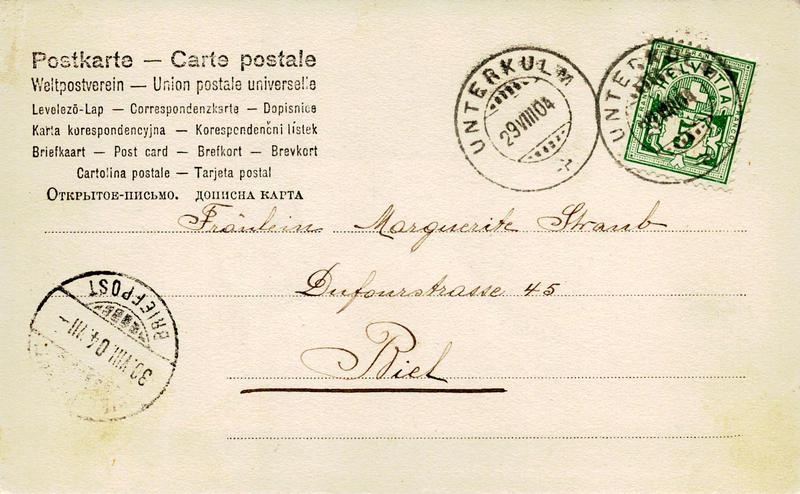 Postkarte — Carte postale
Weltpostverein — Union postale universelle
Levelező-Lap — Correspondenzkarte — Dopisnice
Karta korespondencyjna — Korespondenční lístek
Briefkaart — Post card — Brefkort — Brevkort
Cartolina postale — Tarjeta postal
Открытое-письмо. дописна карта
UNTERKULM
29 VIII 04
UNTERKULM
HELVETIA
5
Fräulein Marguerite Straub
Dufourstrasse 45
Biel
BRIEFPOST
30.VIII.04.III-